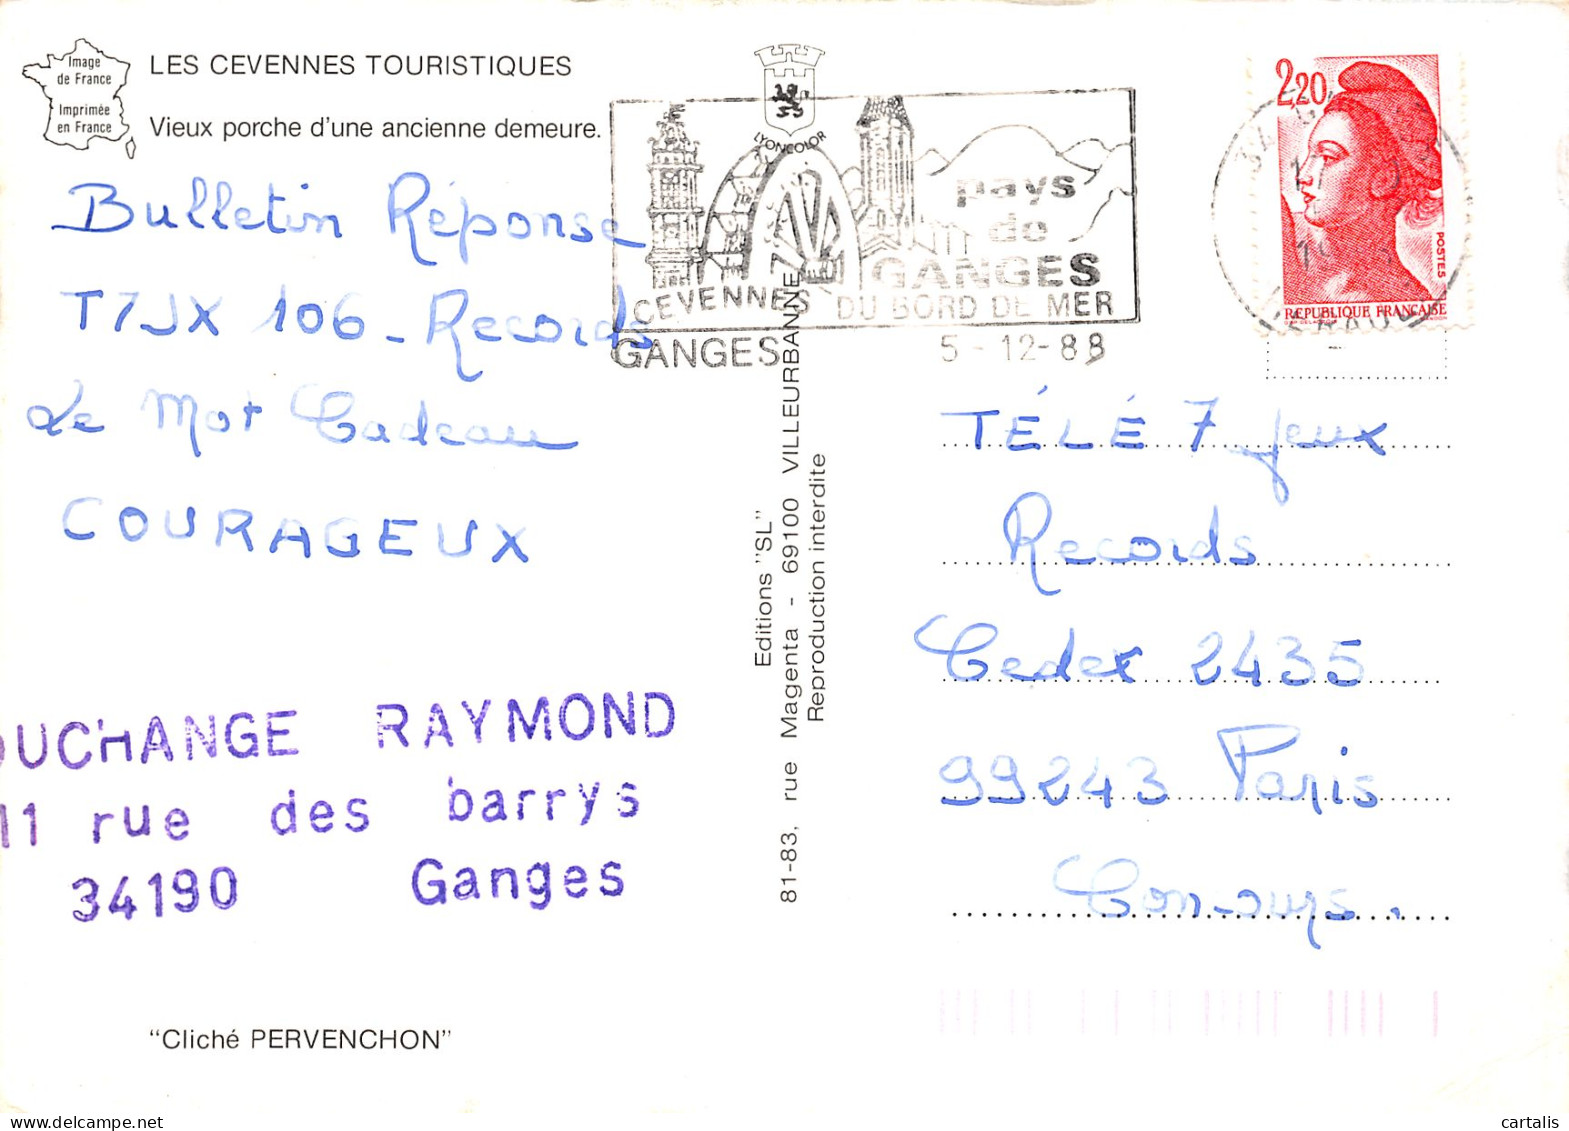 Image
de France
Imprimée
en France
LES CEVENNES TOURISTIQUES
Vieux porche d'une ancienne demeure.
LYONCOLOR
pays
de
GANGES
CEVENNES DU BORD DE MER
GANGES 5-12-88
2,20
POSTES
REPUBLIQUE FRANÇAISE
Bulletin Réponse
T7JX 106 - Records
Le Mot Cadeau
COURAGEUX
OUCHANGE RAYMOND
11 rue des barrys
34190 Ganges
"Cliché PERVENCHON"
Editions "SL"
81-83, rue Magenta - 69100 VILLEURBANNE
Reproduction interdite
TÉLÉ 7 Jeux
Records
Cedex 2435
99243 Paris
Con-ours.
cartalis